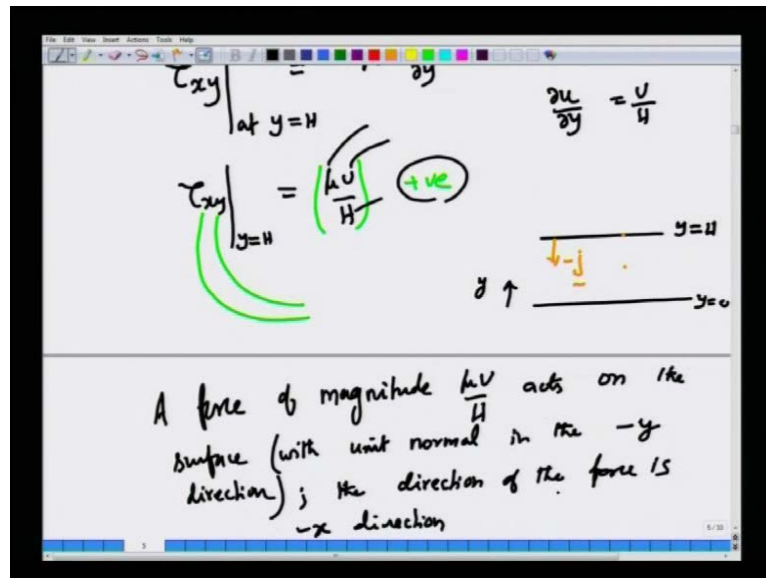 File Edit View Insert Actions Tools Help
τxy | at y=H = ∂y
∂u/∂y = U/H
τxy | y=H = (μU/H) +ve
y=H
-j
y ↑
y=0
A force of magnitude μU/H acts on the
surface (with unit normal in the -y
direction); the direction of the force is
-x direction
5/33
5